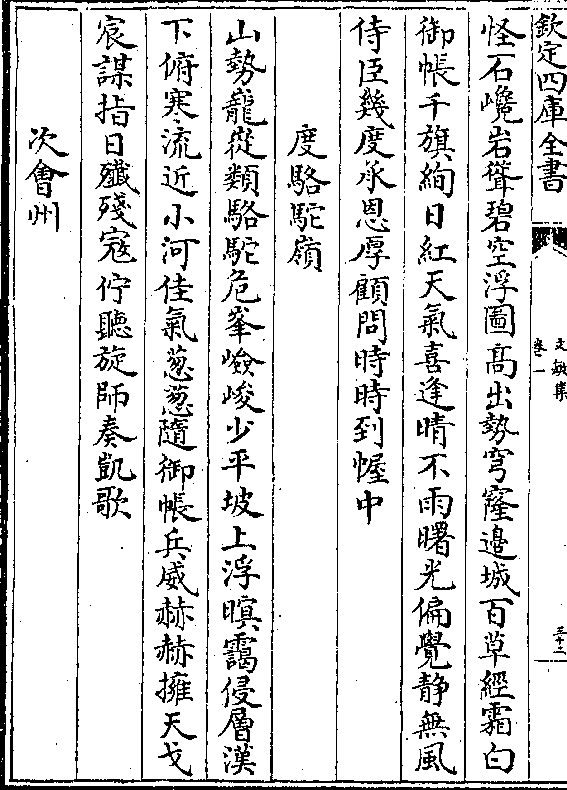 欽定四庫全書
文敏集
卷一
三十二
怪石巉岩聳碧空浮圖高出勢穹窿邉城百草經霜白
御帳千旗絢日紅天氣喜逢晴不雨曙光偏覺静無風
侍臣幾度承恩厚顧問時時到幄中
度駱駝嶺
山勢龍嵸類駱駝危峯嶮峻少平坡上浮暝靄侵層漢
下俯寒流近小河佳氣葱葱隨御帳兵威赫赫擁天戈
宸謀指日殱殘宼佇聽旋師奏凱歌
次會州